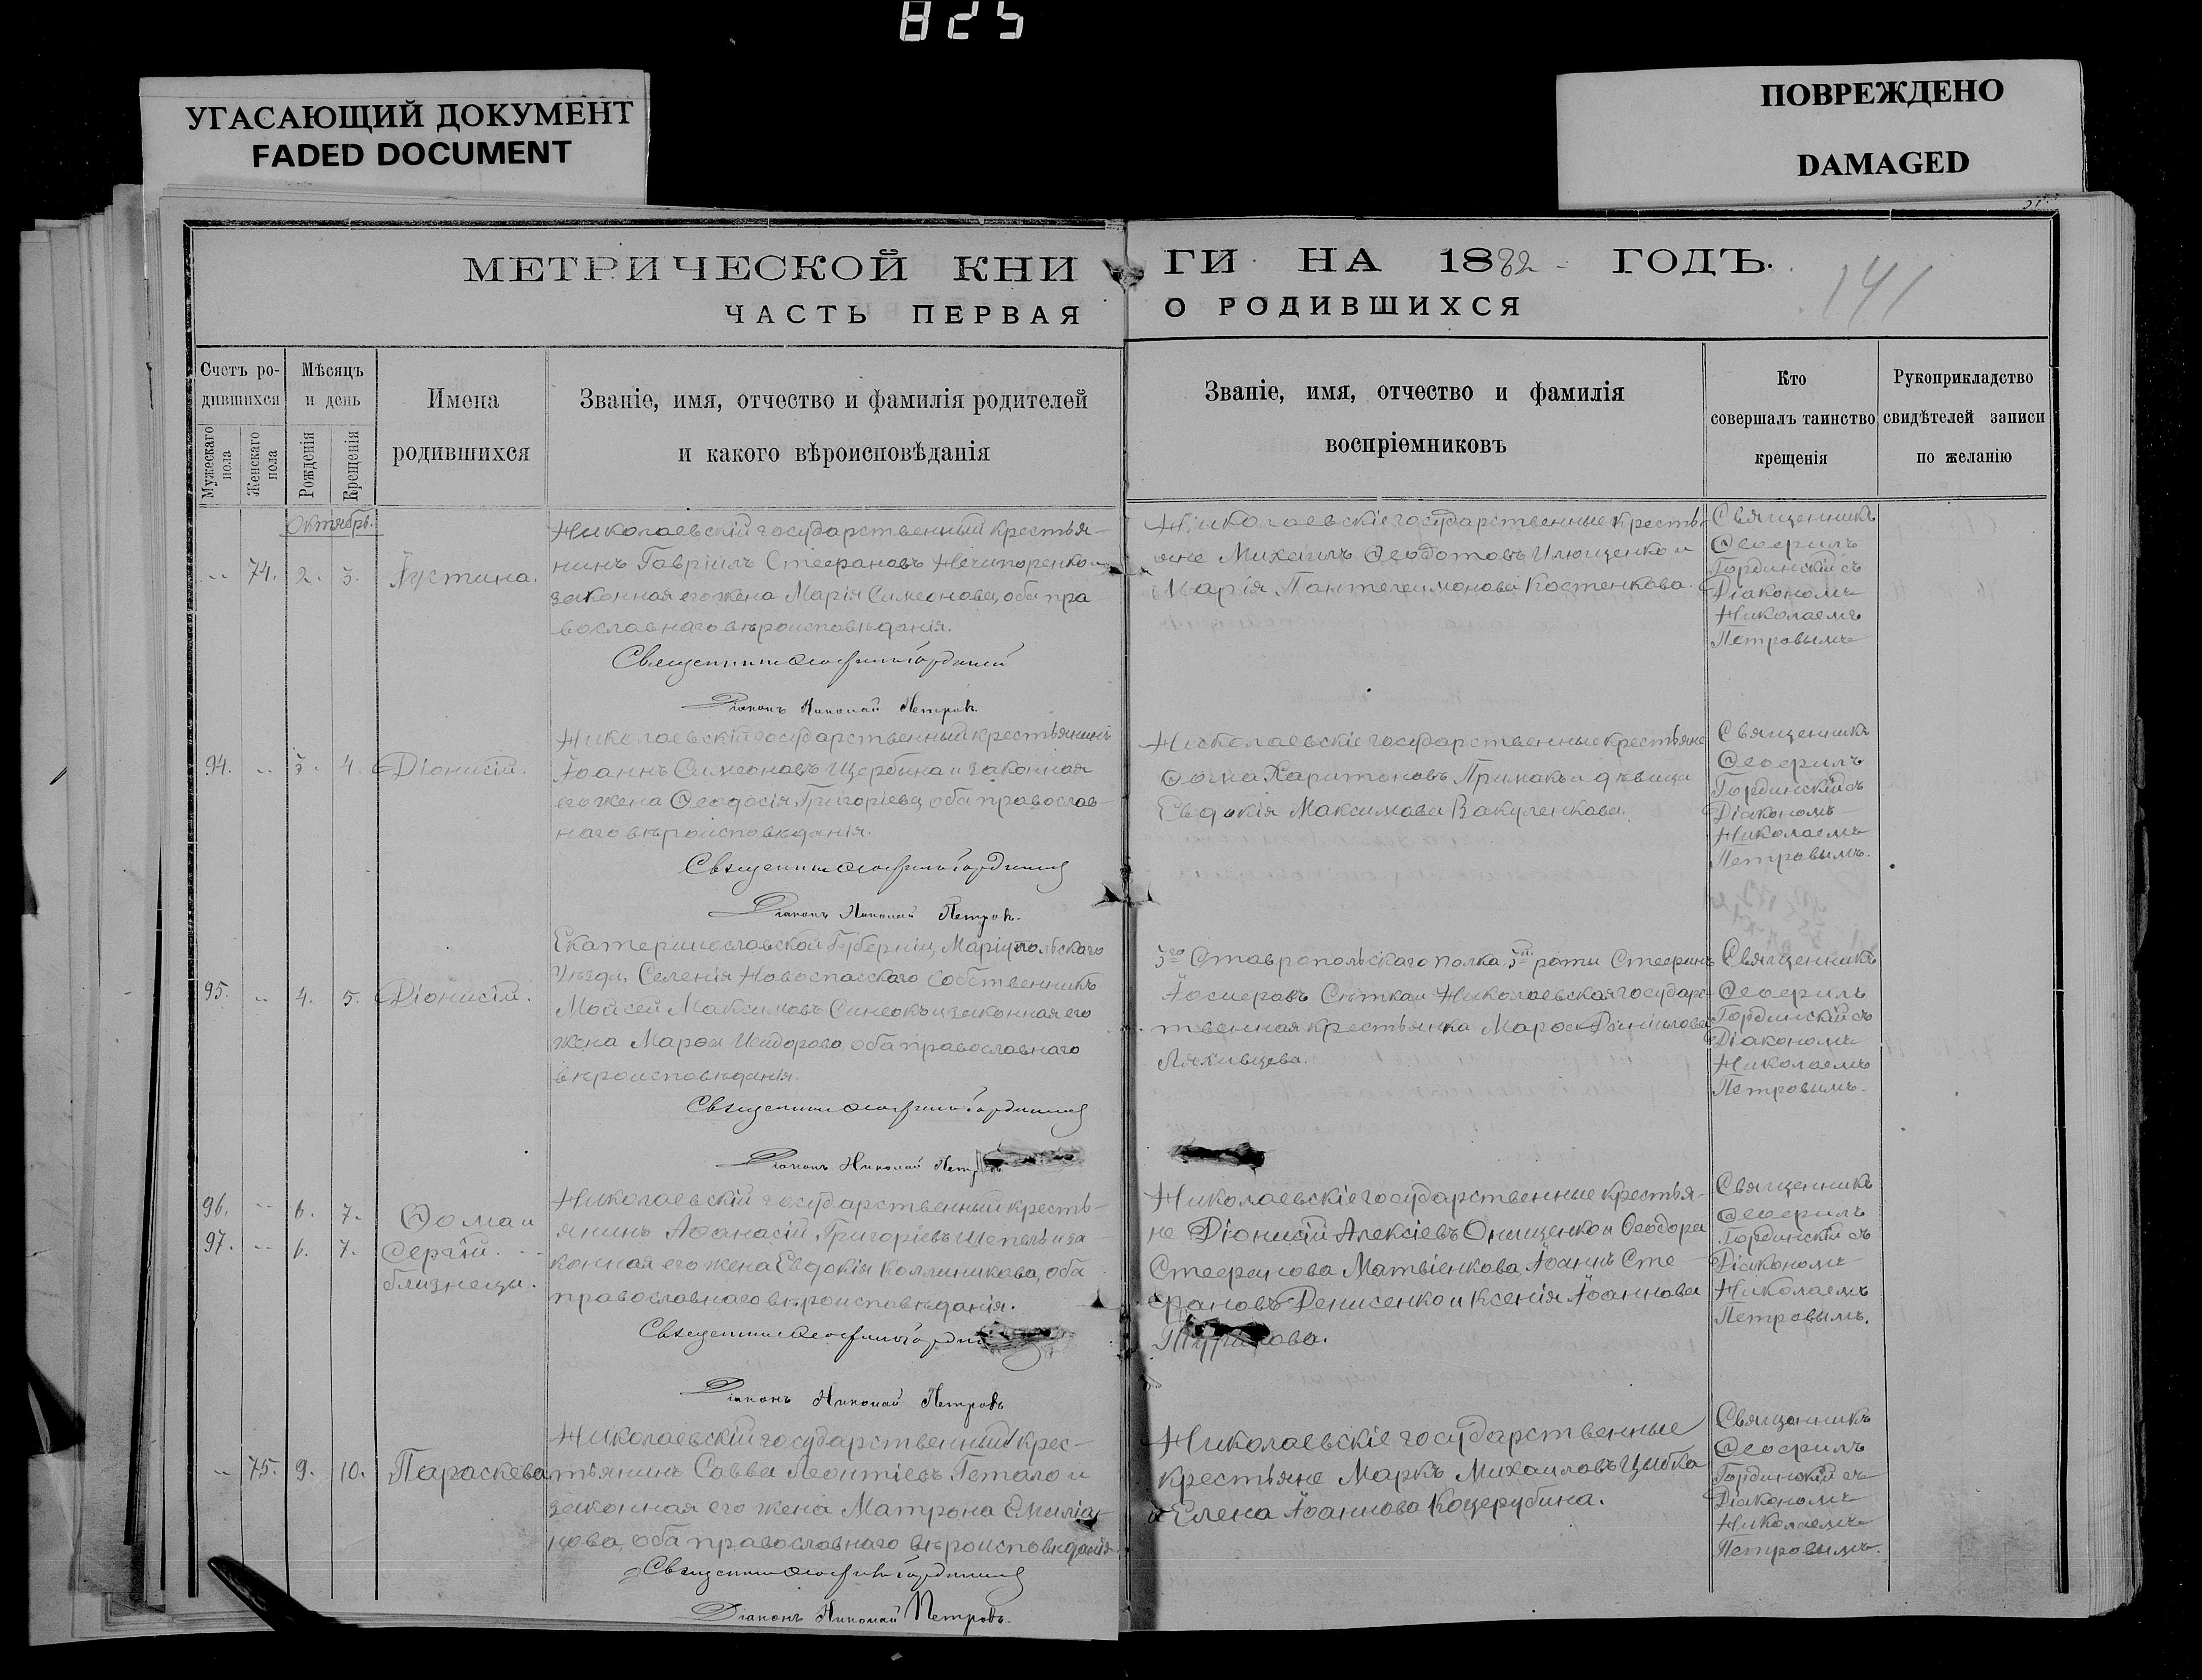 825
УГАСАЮЩИЙ ДОКУМЕНТ
FADED DOCUMENT
ПОВРЕЖДЕНО
DAMAGED
МЕТРИЧЕСКОЙ КНИ
ГИ НА 1882 ГОДЪ.
141
ЧАСТЬ ПЕРВАЯ
О РОДИВШИХСЯ
Счетъ ро-
дившихся
Мужескаго пола
Женскаго пола
Мѣсяцъ
и день
Рожденія
Крещенія
Имена
родившихся
Званіе, имя, отчество и фамилія родителей
и какого вѣроисповѣданія
Званіе, имя, отчество и фамилія
воспріемниковъ
Кто
совершалъ таинство
крещенія
Рукоприкладство
свидѣтелей записи
по желанію
Октябрь.
74. 2. 3. Іустина.
Николаевскій государственный крестья-
нинъ Гавріилъ Стефановъ Нечипоренко и
законная его жена Марія Симеонова, оба пра
вославнаго вѣроисповѣданія.
Священникъ Ѳеофилъ Гординскій
Діаконъ Николай Петровъ.
Николаевскіе государственные кресть-
яне Михаилъ Ѳеодотовъ Ильющенко и
Марія Пантелеимонова Костенкова.
Священникъ
Ѳеофилъ
Гординскій съ
Діакономъ
Николаемъ
Петровымъ
94. 3. 4. Діонисій.
Николаевскій государственный крестьянинъ
Іоаннъ Симеоновъ Щербина и законная
его жена Ѳеодосія Григоріева, оба православ-
наго вѣроисповѣданія.
Священникъ Ѳеофилъ Гординскій
Діаконъ Николай Петровъ.
Николаевскіе государственные крестьяне
Ѳома Харитоновъ Примакъ и дѣвица
Евдокія Максимова Вакуленкова.
Священникъ
Ѳеофилъ
Гординскій съ
Діакономъ
Николаемъ
Петровымъ.
95. 4. 5. Діонисій.
Екатеринославской Губерніи, Маріупольскаго
Уѣзда, Селенія Новоспасскаго собственникъ
Моисей Максимовъ Синеокъ и законная его
жена Марѳа Исидорова, оба православнаго
вѣроисповѣданія.
Священникъ Ѳеофилъ Гординскій
Діаконъ Николай Петровъ
5го Ставропольскаго полка 5й роты Стефанъ
Іосифовъ Сытка и Николаевская государс-
твенная крестьянка Марѳа Даніилова
Ляхивцева.
Священникъ
Ѳеофилъ
Гординскій съ
Діакономъ
Николаемъ
Петровымъ.
96. 6. 7. Ѳома и
97. 6. 7. Сергій.
близнецы.
Николаевскій государственный кресть-
янинъ Аѳанасій Григоріевъ Шепель и за
конная его жена Евдокія Каллиникова, оба
православнаго вѣроисповѣданія.
Священникъ Ѳеофилъ
Діаконъ Николай Петровъ
Николаевскіе государственные крестья-
не Діонисій Алексіевъ Онищенко и Ѳеодора
Стефанова Матвіенкова, Іоаннъ Сте
фановъ Денисенко и Ксенія Іоаннова
Священникъ
Ѳеофилъ
Гординскій съ
Діакономъ
Николаемъ
Петровымъ.
75. 9. 10. Параскева
Николаевскій государственный крес-
тьянинъ Савва Леонтіевъ Гетало и
законная его жена Матрона Емиліа-
нова, оба православнаго вѣроисповѣданія.
Священникъ Ѳеофилъ Гординскій
Діаконъ Николай Петровъ.
Николаевскіе государственные
крестьяне Маркъ Михаиловъ Цыбка
и Елена Іоаннова Коцерубина.
Священникъ
Ѳеофилъ
Гординскій съ
Діакономъ
Николаемъ
Петровымъ.